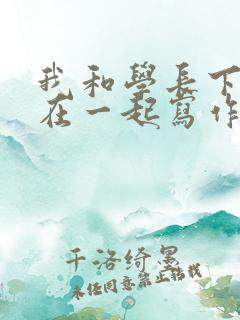 我和學長下
在一起寫作
千洛綺墨
未经同意禁止转载